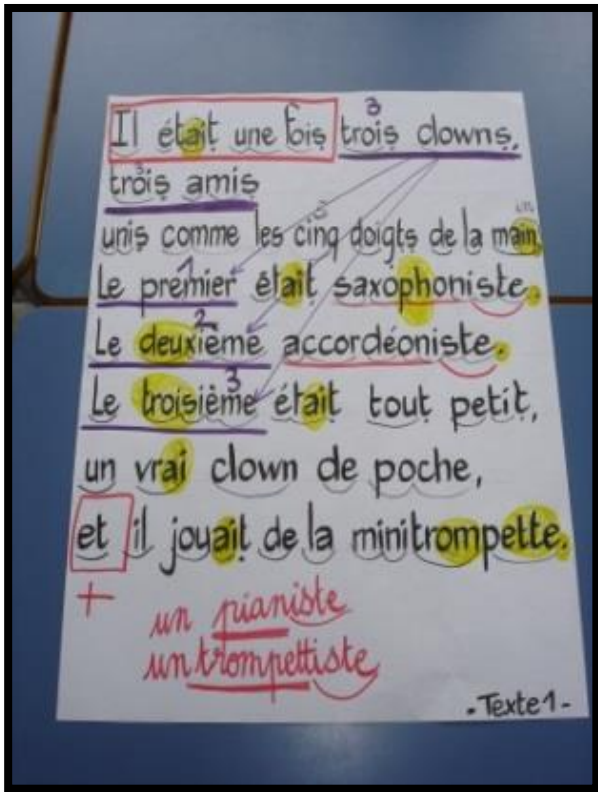 3
Il était une fois trois clowns,
3
trois amis
in
unis comme les cinq doigts de la main,
1
Le premier était saxophoniste.
2
Le deuxième accordéoniste.
3
Le troisième était tout petit,
un vrai clown de poche,
et il jouait de la minitrompette.
+
un pianiste
un trompettiste
-Texte 1-